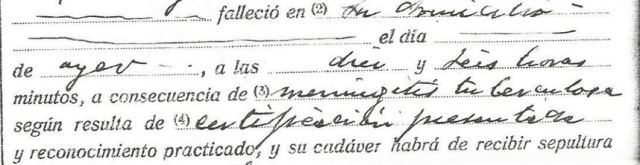 falleció en (2) su domicilio
el día
de ayer, a las diez y seis horas
minutos, a consecuencia de (3) meningitis tuberculosa
según resulta de (4) certificación presentada
y reconocimiento practicado, y su cadáver habrá de recibir sepultura